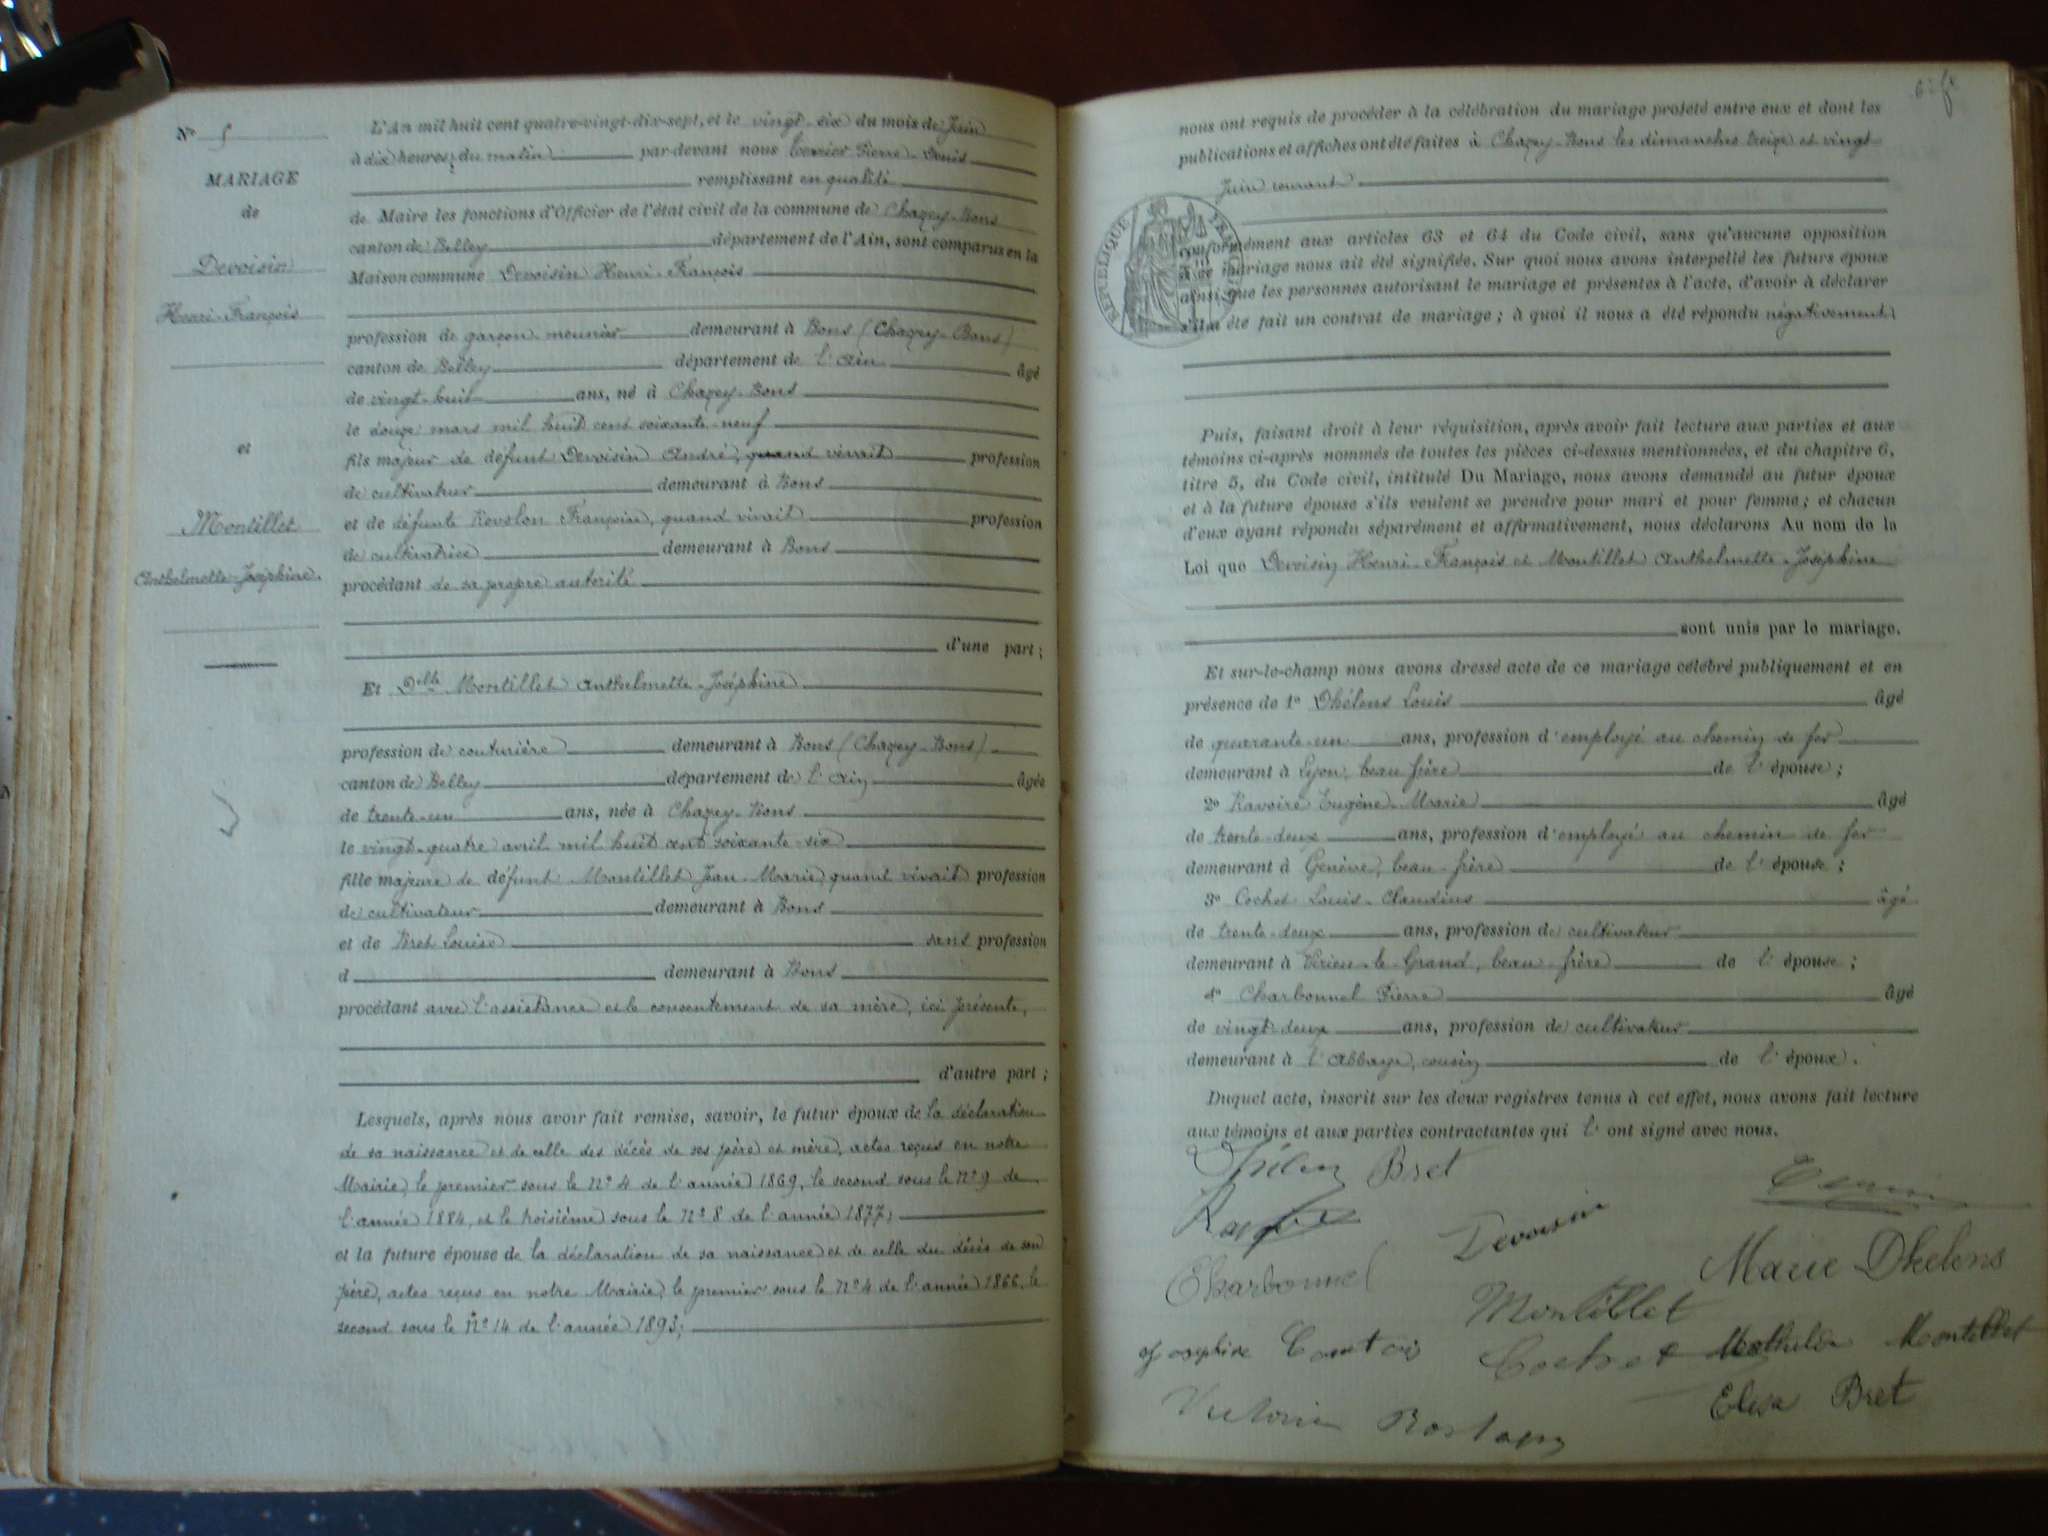 N° 5
MARIAGE
de
Devoisin
Henri-François
et
Montillet
Anthelmette-Joséphine.
L'An mil huit cent quatre-vingt-dix-sept, et le vingt-six du mois de Juin
à dix heures du matin par-devant nous Pierre-Denis
remplissant en qualité
de Maire les fonctions d'Officier de l'état civil de la commune de Chazey-Bons
canton de Belley département de l'Ain, sont comparus en la
Maison commune Devoisin Henri-François
profession de garçon-meunier demeurant à Bons (Chazey-Bons)
canton de Belley département de l'Ain âgé
de vingt-huit ans, né à Chazey-Bons
le douze mars mil huit cent soixante-neuf
fils majeur de défunt Devoisin André, quand vivait profession
de cultivateur demeurant à Bons
et de défunte Françoise, quand vivait profession
de cultivatrice demeurant à Bons
procédant de sa propre autorité
d'une part;
Et Delle Montillet Anthelmette-Joséphine
profession de couturière demeurant à Bons (Chazey-Bons)
canton de Belley département de l'Ain âgée
de trente-un ans, née à Chazey-Bons
le vingt-quatre avril mil huit cent soixante-six
fille majeure de défunt Montillet Jean-Marie, quand vivait profession
de cultivateur demeurant à Bons
et de Bret Louise sans profession
d demeurant à Bons
procédant avec l'assistance et le consentement de sa mère, ici présente,
d'autre part;
Lesquels, après nous avoir fait remise, savoir, le futur époux de la déclaration
de sa naissance et de celle des décès de ses père et mère, actes reçus en notre
Mairie, le premier sous le N° 4 de l'année 1869, le second sous le N° 9 de
l'année 1884, et le troisième sous le N° 8 de l'année 1877;
et la future épouse de la déclaration de sa naissance et de celle du décès de son
père, actes reçus en notre Mairie, le premier sous le N° 4 de l'année 1866, le
second sous le N° 14 de l'année 1893;
nous ont requis de procéder à la célébration du mariage projeté entre eux et dont les
publications et affiches ont été faites à Chazey-Bons les dimanches treize et vingt
Juin courant
RÉPUBLIQUE
conformément aux articles 63 et 64 du Code civil, sans qu'aucune opposition
à ce mariage nous ait été signifiée. Sur quoi nous avons interpellé les futurs époux
ainsi que les personnes autorisant le mariage et présentes à l'acte, d'avoir à déclarer
s'il a été fait un contrat de mariage; à quoi il nous a été répondu négativement
Puis, faisant droit à leur réquisition, après avoir fait lecture aux parties et aux
témoins ci-après nommés de toutes les pièces ci-dessus mentionnées, et du chapitre 6,
titre 5, du Code civil, intitulé Du Mariage, nous avons demandé au futur époux
et à la future épouse s'ils veulent se prendre pour mari et pour femme; et chacun
d'eux ayant répondu séparément et affirmativement, nous déclarons Au nom de la
Loi que Devoisin Henri-François et Montillet Anthelmette-Joséphine
sont unis par le mariage.
Et sur-le-champ nous avons dressé acte de ce mariage célébré publiquement et en
présence de 1° Dhélens Louis âgé
de quarante-un ans, profession d'employé au chemin de fer
demeurant à Lyon, beau frère de l'épouse;
2° Ravoire Eugène-Marie âgé
de trente-deux ans, profession d'employé au chemin de fer
demeurant à Genève, beau-frère de l'épouse;
3° Cochet Louis-Claudius âgé
de trente-deux ans, profession de cultivateur
demeurant à Virieu-le-Grand, beau-frère de l'épouse;
4° Charbonnel Pierre âgé
de vingt-deux ans, profession de cultivateur
demeurant à l'Abbaye, cousin de l'époux.
Duquel acte, inscrit sur les deux registres tenus à cet effet, nous avons fait lecture
aux témoins et aux parties contractantes qui l'ont signé avec nous.
Dhélens Bret
Devoisin
Charbonnel
Marie Dhelens
Montillet
Joséphine Comtois
Cochet
Mathilde Montillet
Victorine
Elisa Bret